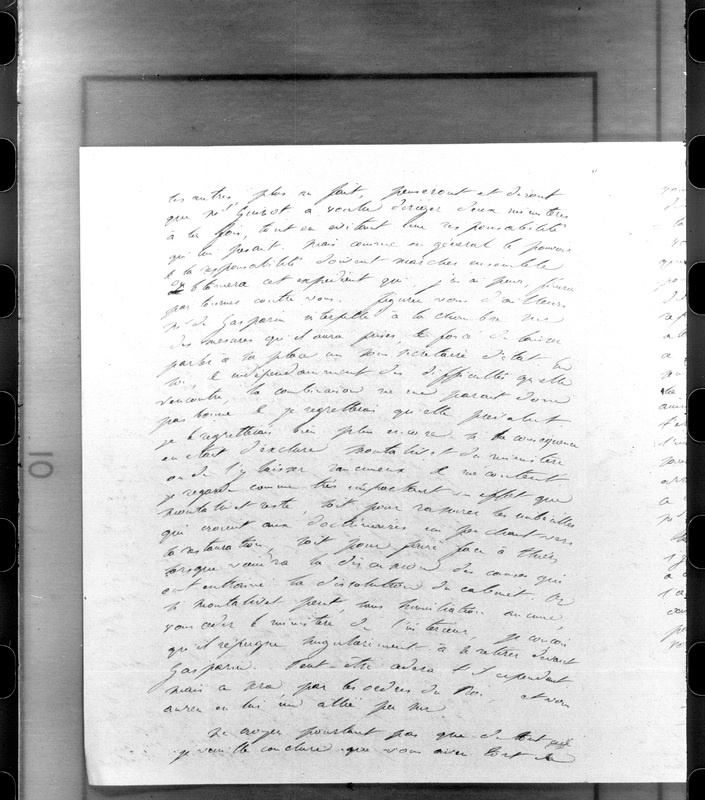 les autres, plus au fait, penseront et diront
que Mr Guizot a voulu diriger deux ministères
à la fois, tout en évitant une responsabilité
qu'on pesant. Mais comme en général le pouvoir
& la responsabilité doivent marcher ensemble
on blâmera cet expédient qui, j'en ai peur, finira
par tourner contre vous. Figurez vous d'ailleurs
Mr de Gasparin interpellé à la chambre sur
des mesures qu'il aura prises, & forcé de laisser
parler à sa place un sous secrétaire d'état. En
soi, & indépendamment des difficultés qu'elle
rencontre, la combinaison ne me parait donc
pas bonne & je regretterais qu'elle prévalut
je le regretterais bien plus encore si la conséquence
en était d'exclure Montalivet du ministère
ou de l'y laisser rancuneux & mécontent
je regarde comme très important en effet que
Montalivet reste, soit pour rassurer les imbéciles
qui croient aux doctrinaires un penchant vers
la restauration, soit pour faire face à Thiers
lorsque viendra la discussion des causes qui
ont entrainé la dissolution du cabinet. Or
si Montalivet peut, sans humiliation aucune
vous céder le ministère de l'intérieur, je conçois
qu'il répugne singulièrement à se retirer devant
Gasparin. Peut-être cédera t'il cependant
mais ce sera, par les ordres du Roi, et vous
aurez en lui un allié peu sûr
ne croyez pourtant pas que de tout ceci
je veuille conclure que vous avez tort de